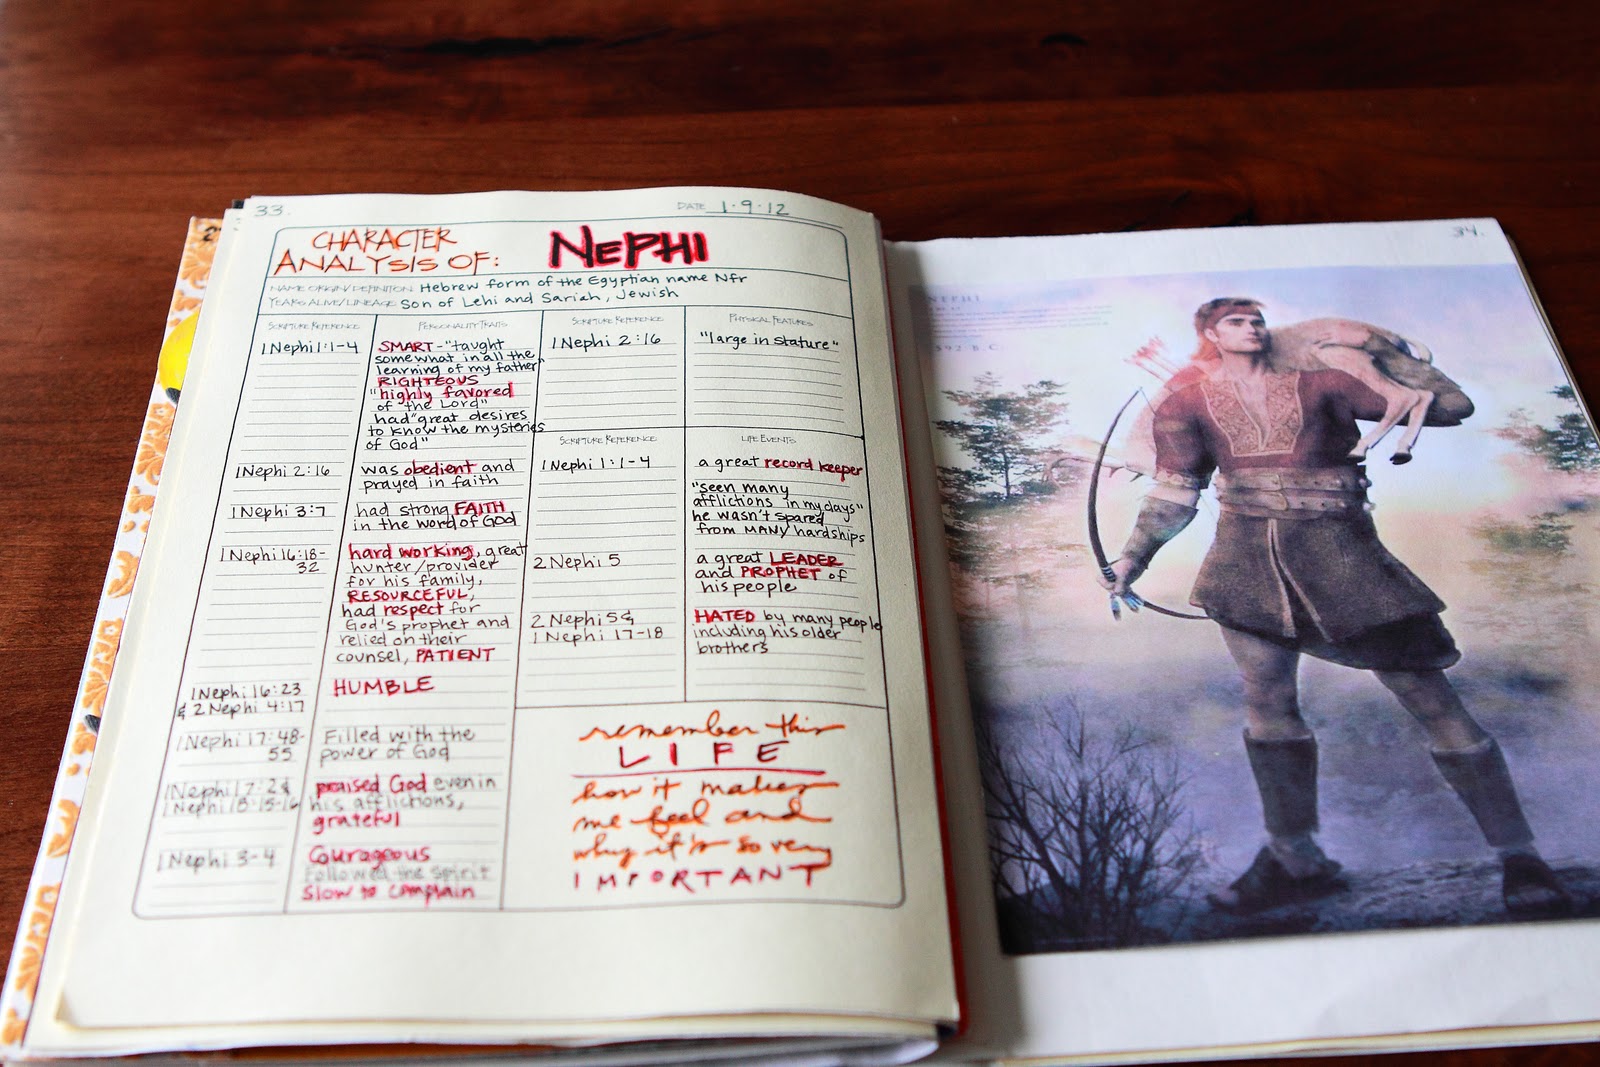 33.
DATE 1·9·12
CHARACTER
ANALYSIS OF:
NEPHI
NAME ORIGIN/DEFINITION Hebrew form of the Egyptian name Nfr
YEARS ALIVE/LINEAGE Son of Lehi and Sariah, Jewish
SCRIPTURE REFERENCE
PERSONALITY TRAITS
1 Nephi 1:1-4
SMART - "taught
somewhat in all the
learning of my father
RIGHTEOUS
"highly favored
of the Lord"
had "great desires
to know the mysteries
of God"
1 Nephi 2:16
was obedient and
prayed in faith
1 Nephi 3:7
had strong FAITH
in the word of God
1 Nephi 16:18-
32
hard working, great
hunter/provider
for his family,
RESOURCEFUL,
had respect for
God's prophet and
relied on their
counsel, PATIENT
1 Nephi 16:23
& 2 Nephi 4:17
HUMBLE
1 Nephi 17:48-
55
Filled with the
power of God
1 Nephi 17:2 &
1 Nephi 18:15-16
praised God even in
his afflictions,
grateful
1 Nephi 3-4
Courageous
Followed the spirit
Slow to complain
SCRIPTURE REFERENCE
PHYSICAL FEATURES
1 Nephi 2:16
"large in stature"
SCRIPTURE REFERENCE
LIFE EVENTS
1 Nephi 1:1-4
a great record keeper
"seen many
afflictions in my days"
he wasn't spared
from MANY hardships
2 Nephi 5
a great LEADER
and PROPHET of
his people
2 Nephi 5 &
1 Nephi 17-18
HATED by many people
including his older
brothers
remember this
LIFE
how it makes
me feel and
why it is so very
IMPORTANT
34.
NEPHI
592 B.C.